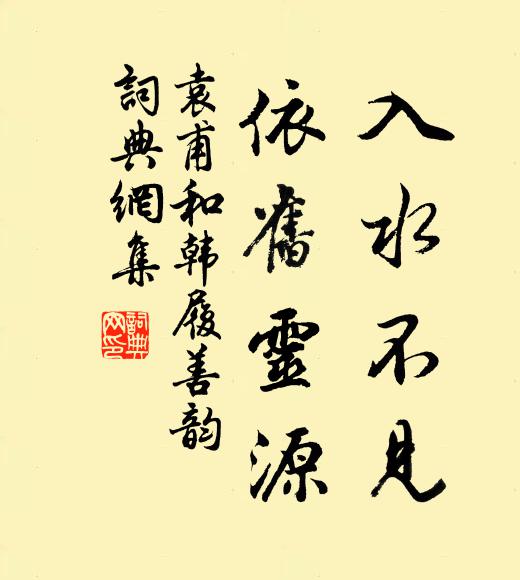 入水不見
依舊靈源
袁甫和韩履善韵
詞典網集
詞典
网印